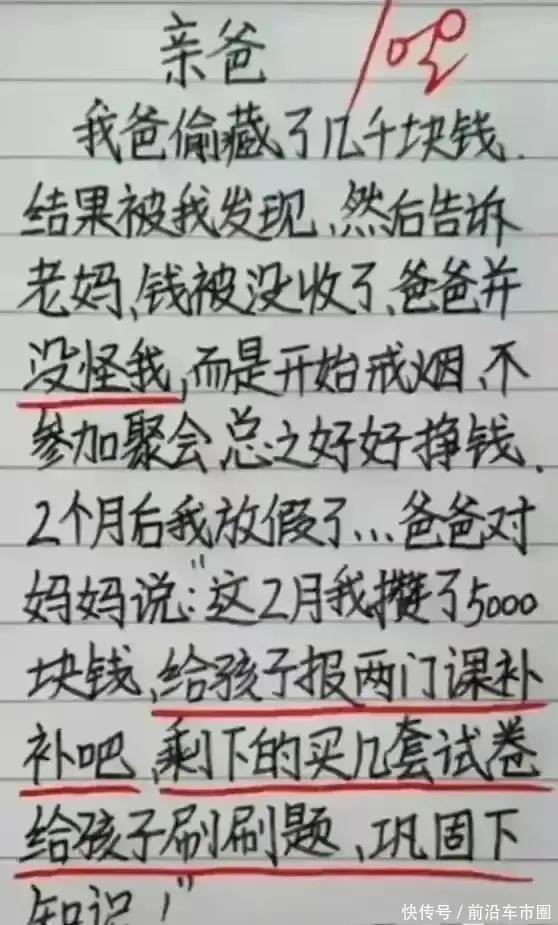 亲爸
我爸偷藏了几千块钱.
结果被我发现,然后告诉
老妈,钱被没收了,爸爸并
没怪我,而是开始戒烟、不
参加聚会,总之好好挣钱.
2个月后我放假了...爸爸对
妈妈说:"这2月我攒了5000
块钱,给孩子报两门课补
补吧,剩下的买几套试卷
给孩子刷刷题、巩固下
知识!"
快传号/前沿车市圈